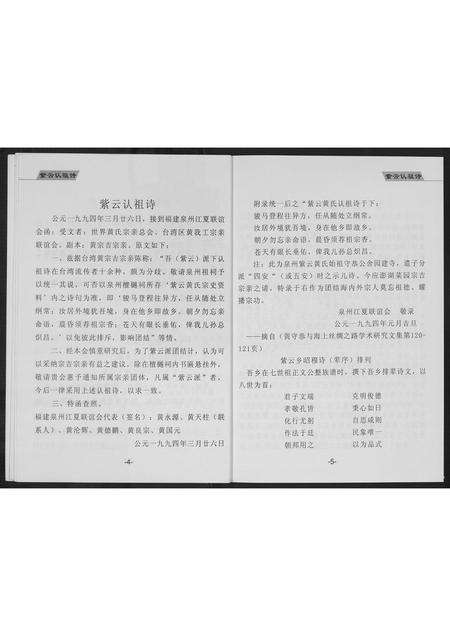 紫云认祖诗
紫云认祖诗
公元一九九四年三月廿六日，接到福建泉州江夏联谊
会函：受文者：世界黄氏宗亲总会、台湾区黄我工宗亲
联谊会。副本：黄宗吉宗亲，原文如下：
一、兹据台湾黄宗吉宗亲陈称：“吾（紫云）派下认
祖诗在台湾流传者十余种，颇为分歧。敬请泉州祖祠予
以统一其说，可否以泉州檀樾祠所存‘紫云黄氏宗史资
料’内之诗句为准，即‘骏马登程往异方，任从随处立
纲常；汝居外境犹吾境，身在他乡即故乡。朝夕勿忘亲
命语，晨昏须荐祖宗香；苍天有眼长垂佑，俾我儿孙总
炽昌。’以免彼此排斥，影响团结”等情。
二、经本会慎重研究后，为了紫云派团结计，认为可
以采纳宗吉宗亲有益之建议。除在檀樾祠内书匾悬挂外，
敬请贵会惠予通知所属宗亲团体，凡属“紫云派”者，
今后一律采用上述认祖诗，以求一致。
三、特函查照。
福建泉州江夏联谊会代表（签名）：黄永源、黄天柱（联
系人）、黄沦辉、黄德鹏、黄良宗、黄国元
公元一九九四年三月廿六日
-4-
紫云认祖诗
附录统一后之“紫云黄氏认祖诗于下：
骏马登程往异方，任从随处立纲常。
汝居外境犹吾境，身在他乡即故乡。
朝夕勿忘亲命语，晨昏须荐祖宗香。
苍天有眼长垂佑，俾我儿孙总炽昌。
注：此为泉州紫云黄氏始祖守恭公舍园建寺，遣子分
派“四安“（或五安）时之示儿诗。今应澎湖菜园宗吉
宗亲之请，特录于右作为团结海内外宗人莫忘祖德、耀
播宗功。
泉州江夏联谊会 敬录
公元一九九四年元月吉旦
——摘自《黄守恭与海上丝绸之路学术研究文集第120-
121页）
紫云乡昭程诗（辈序）排列
吾乡在七世祖正文公整族谱时，撰下吾乡排辈诗文，以
八世为首：
君子文瑞 克明俊德
孝敬孔皆 秉心如日
化行尤刚 自思咸则
作法于廷 民象唯一
朝郑用之 以为品式
-5-